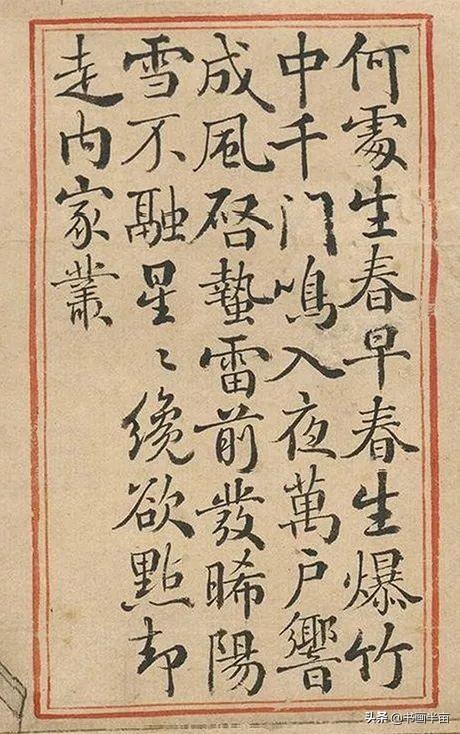 何處生春早春生爆竹
中千门鳴入夜萬戶響
成風啓蟄雷前發晞陽
雪不融星〻纔欲點却
走内家叢
头条 @书画半亩